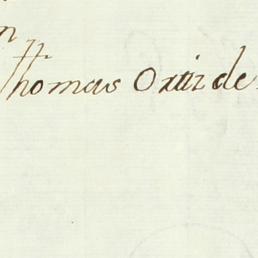 Thomas Ortiz de